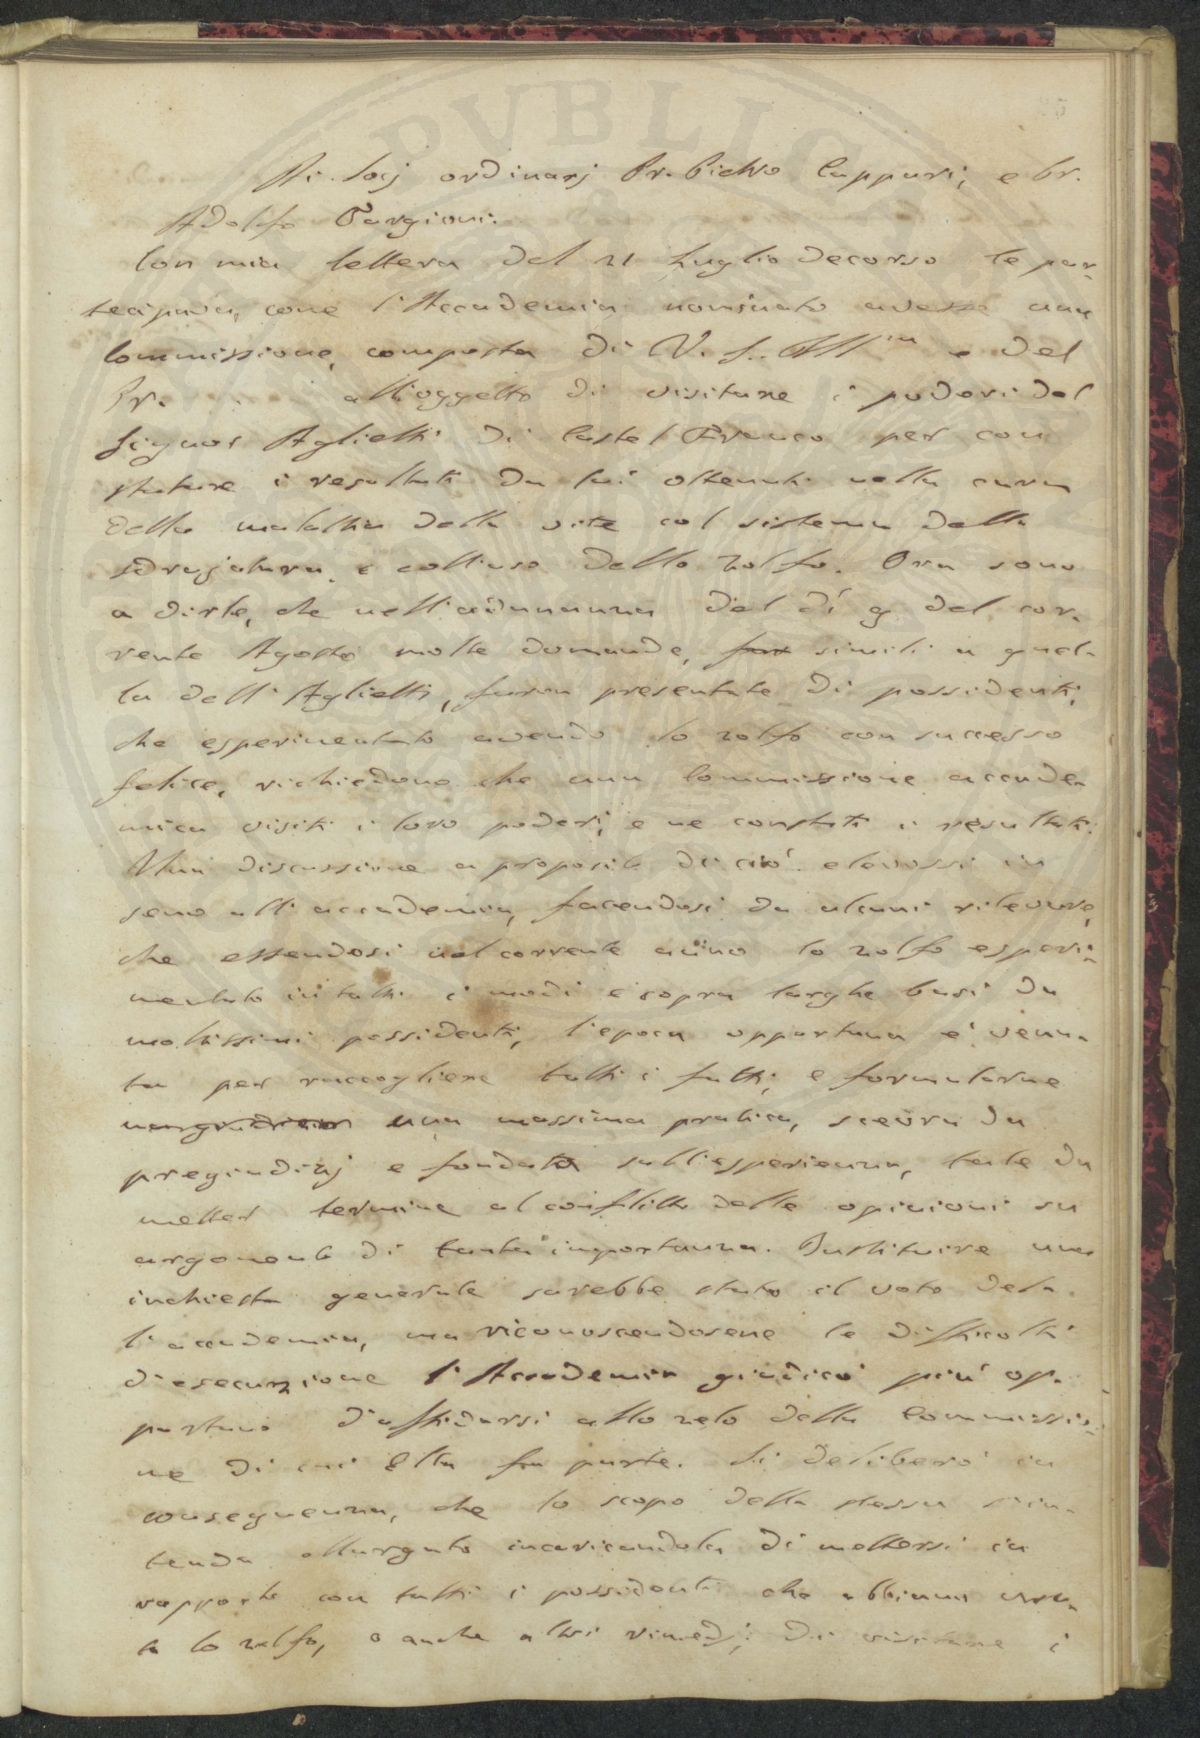 Ai Socj ordinarj Dr. Pietro Cuppari, e Dr.
Adolfo Targioni.
Con mia lettera del 21 Luglio decorso le par-
tecipava, come l'Accademia nominato avesse una
Commissione, composta di V. S. Ill.ma e del
Dr. . . . all'oggetto di visitare i poderi del
Signor Aglietti di Castel Franco per con
statare i resultati da lui ottenuti nella cura
della malattia della vite col sistema della
sdrajatura, e coll'uso dello zolfo. Ora sono
a dirle, che nell'adunanza del dí 9 del cor-
rente Agosto molte domande, simili a quel-
la dell'Aglietti, furon presentate di possidenti,
che esperimentato avendo lo zolfo con successo
felice, richiedono che una Commissione accade-
mica visiti i loro poderi, e ne constati i resultati.
Una discussione a proposito di ciò elevossi in
seno all'accademia, facendosi da alcuni rilevare,
che essendosi nel corrente anno lo zolfo esperi-
mentato in tutti i modi e sopra larghe basi da
moltissimi possidenti, l'epoca opportuna è venu-
ta per raccogliere tutti i fatti, e formularne
una massima pratica, scevra da
pregiudizj e fondata sull'esperienza, tale da
metter termine al conflitto delle opinioni su
argomento di tanta importanza. Instituire una
inchiesta generale sarebbe stato il voto del-
l'accademia, ma riconoscendosene le difficoltà
d'esecuzione l'Accademia giudicò più op-
portuno d'affidarsi allo zelo della Commissio-
ne di cui Ella fa parte. Si deliberò in
conseguenza, che lo scopo della stessa s'in-
tenda allargato incaricandola di mettersi in
rapporto con tutti i possidenti che abbiano usa-
to lo zolfo, o anche altri rimedj; di visitare i